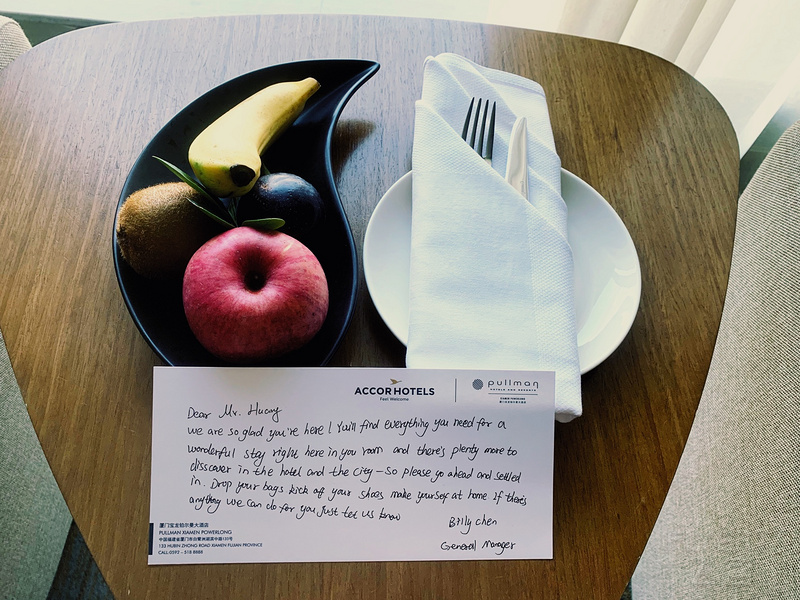 ACCOR HOTELS
Feel Welcome
pullman
HOTELS AND RESORTS
Dear Mr. Huang
we are so glad you're here! You'll find everything you need for a
wonderful stay right here in you room and there's plenty more to
disscover in the hotel and the city - So please go ahead and settled
in. Drop your bags kick off your shoes make yourself at home If there's
anything we can do for you just let us know
Billy chen
General Manager
厦门宝龙铂尔曼大酒店
PULLMAN XIAMEN POWERLONG
中国福建省厦门市思明区湖滨中路133号
133 HUBIN ZHONG ROAD XIAMEN FUJIAN PROVINCE
CALL:0592 - 518 8888